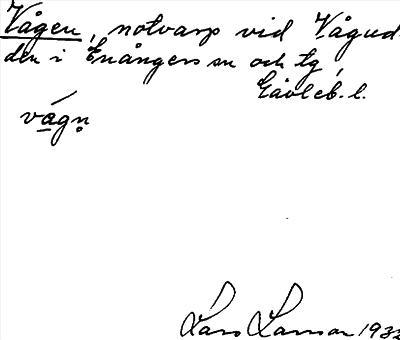 Vågen, notvarp vid Vågud-
den i Enångers sn och tg,
Gävleb. l.
vagn
Lars Larsson 1933